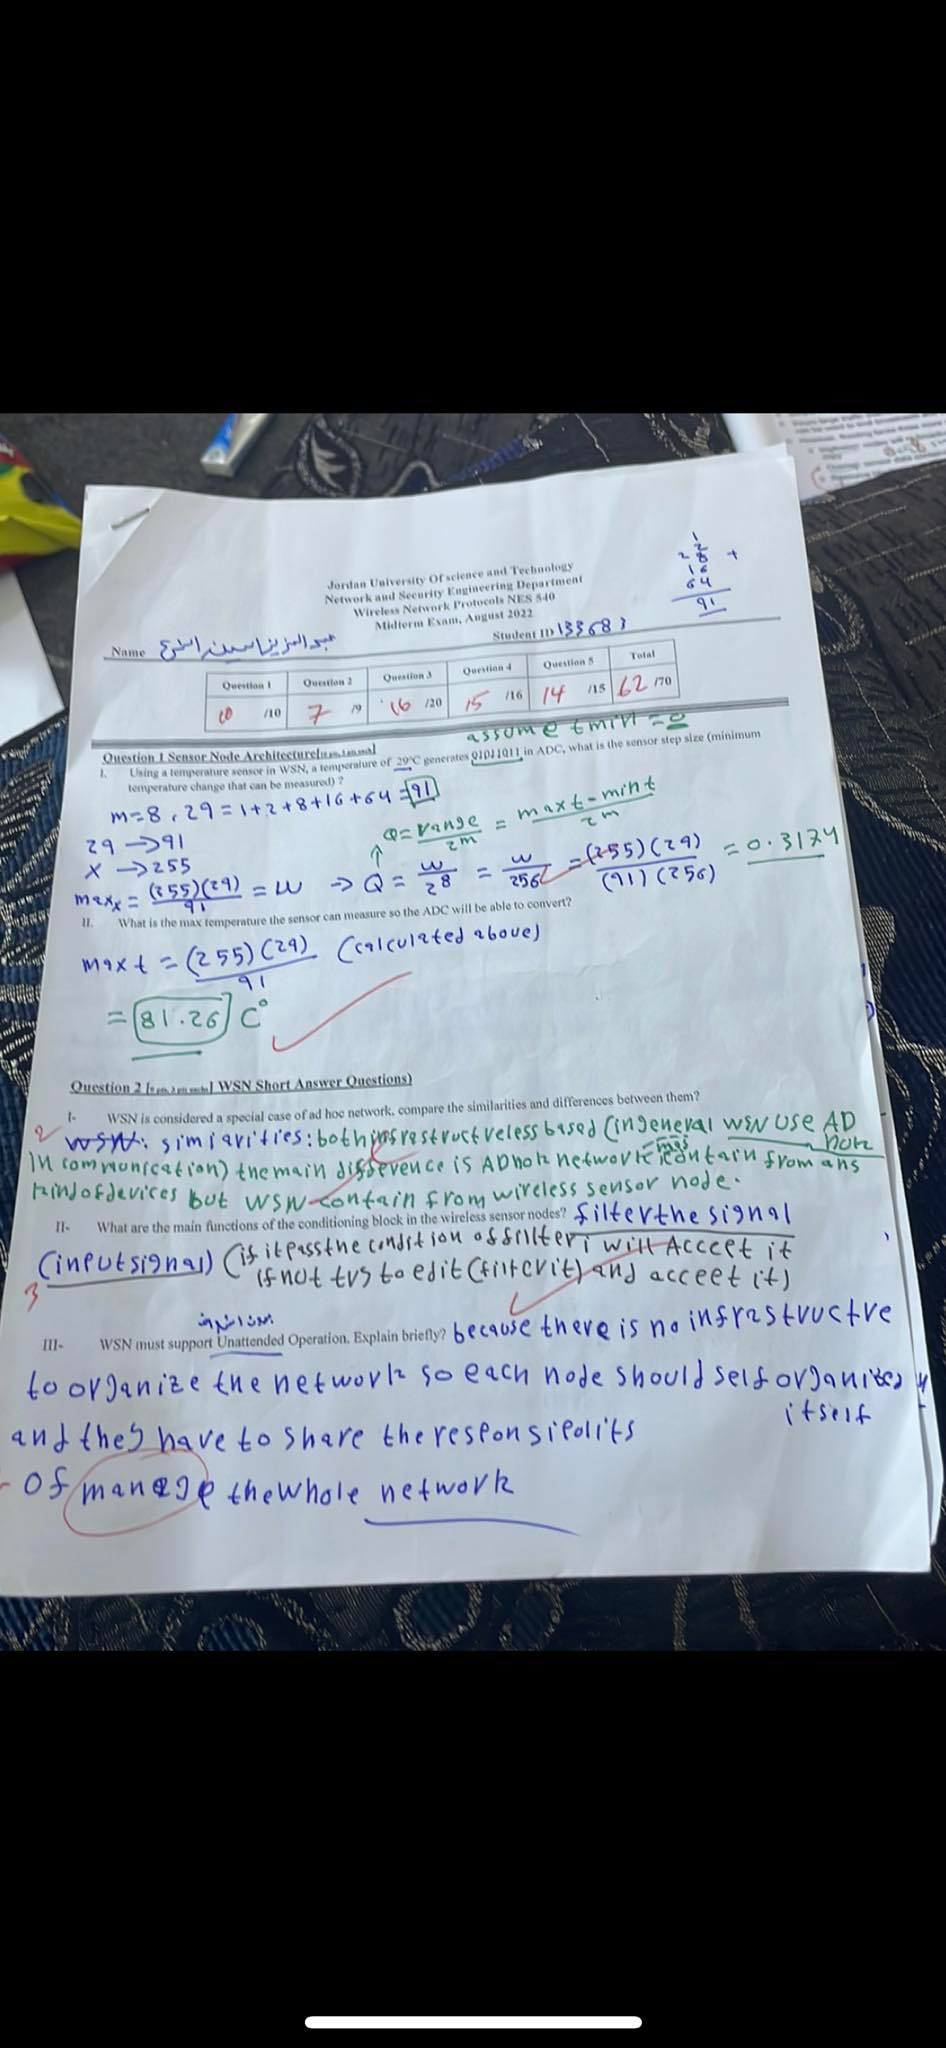 1
2
2 8 +
16
64
91
Jordan University Of science and Technology
Network and Security Engineering Department
Wireless Network Protocols NES 540
Midterm Exam, August 2022
Name
Student ID 133683
Question 1 Question 2 Question 3 Question 4 Question 5 Total
10 /10 7 /9 16 /20 15 /16 14 /15 62 /70
assume tmin = 0
Question 1 Sensor Node Architecture
I. Using a temperature sensor in WSN, a temperature of 29°C generates 01011011 in ADC, what is the sensor step size (minimum
temperature change that can be measured) ?
m=8, 29 = 1+2+8+16+64 = 91
Q = range / 2m = maxt - mint / 2m
29 → 91
x → 255
maxx = (255)(29) / 91 = W → Q = W / 2^8 = W / 256 = (255)(29) / (91)(256) = 0.3174
II. What is the max temperature the sensor can measure so the ADC will be able to convert?
max t = (255)(29) / 91 (calculated above)
= 81.26 C°
Question 2 WSN Short Answer Questions)
I- WSN is considered a special case of ad hoc network, compare the similarities and differences between them?
2 WSN: simiarities: both infrestructveless based (in general WSN USE AD
HOK
IN communication) the main difference is ADhok network may contain from any
kind of devices but WSN contain from wireless sensor node.
II- What are the main functions of the conditioning block in the wireless sensor nodes? filter the signal
(input signal) (if it pass the condition of filter i will Accept it
3 if not try to edit (filter it) and accept it)
III- WSN must support Unattended Operation. Explain briefly? because there is no infrastructre
to organize the network so each node should self organized
itself
and they have to share the responsipolity
of manage the whole network